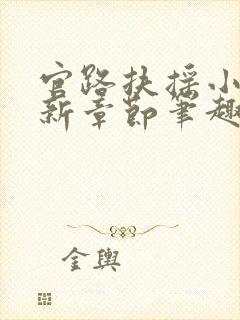 官路扶摇小
新章节笔趣
金舆